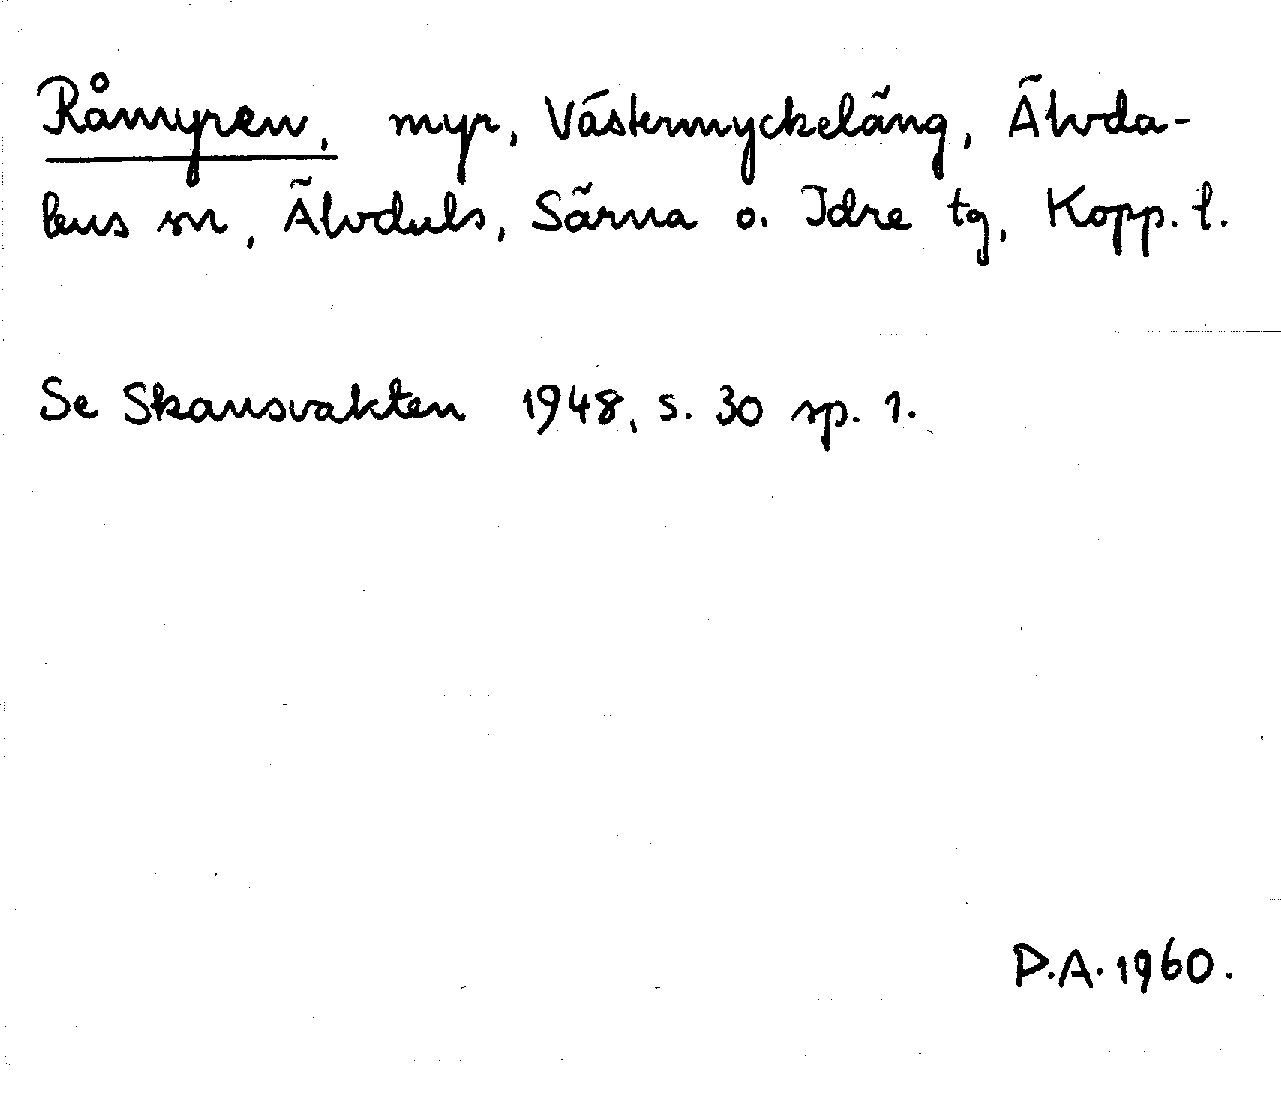 Råmyren, myr, Västermyckeläng, Älvda-
lens sn, Älvdals, Särna o. Idre tg, Kopp. l.
Se Skansvakten 1948, s. 30 sp. 1.
D.A. 1960.